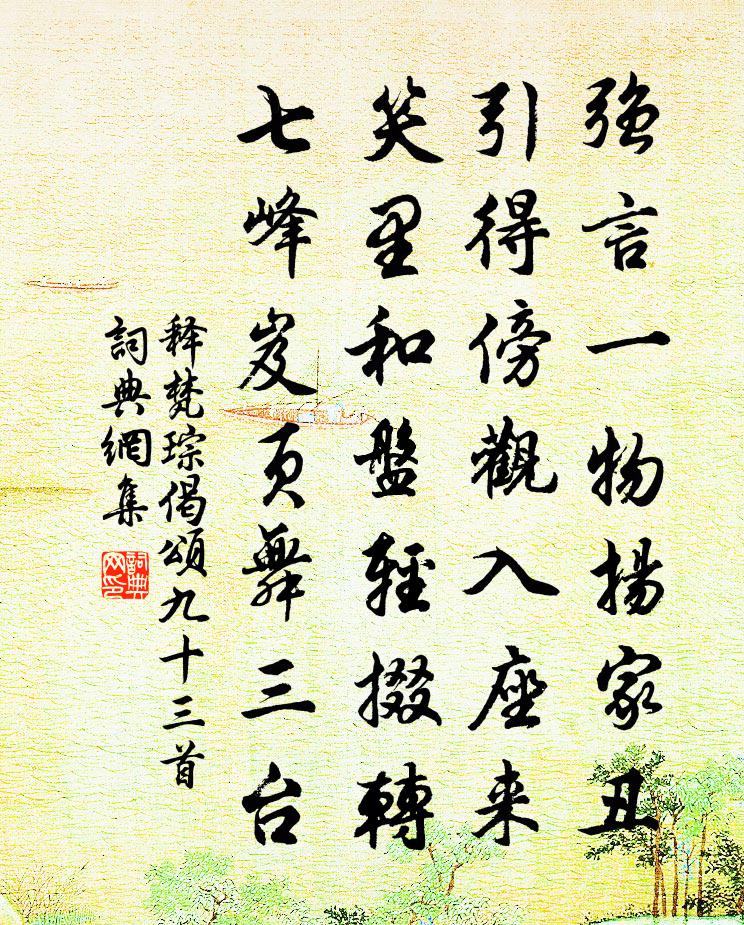 強言一物揚家丑
引得傍觀入座来
笑里和盤輕掇轉
七峰岌页舞三台
释梵琮偈頌九十三首
詞典網集
詞典
网印